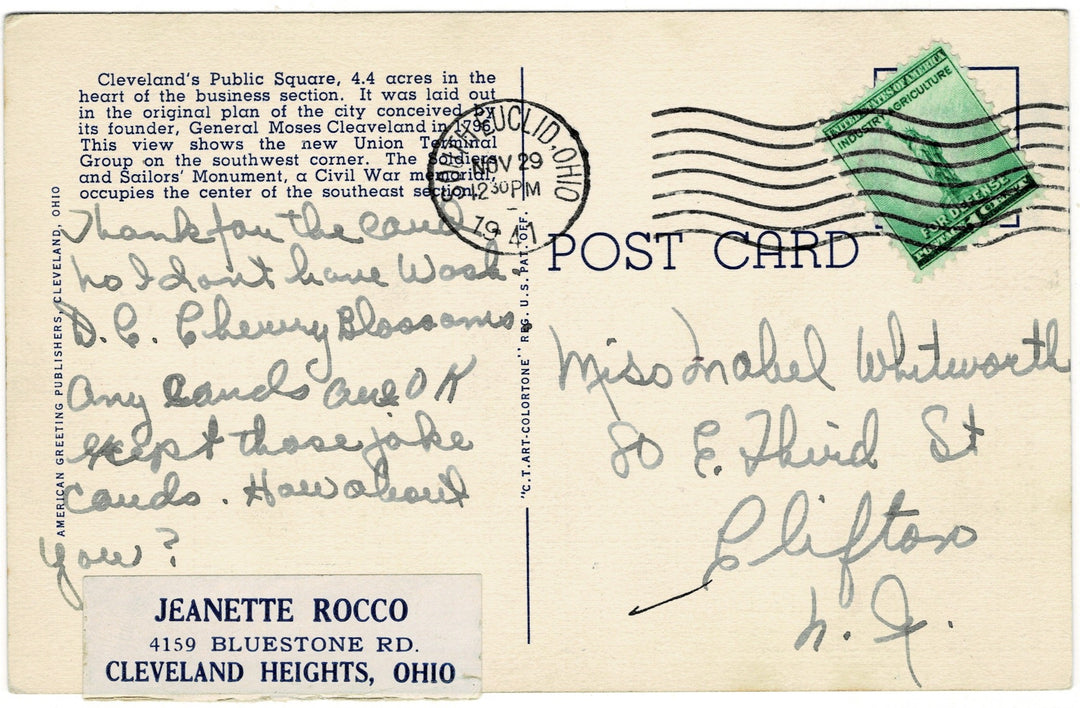 Cleveland's Public Square, 4.4 acres in the
heart of the business section. It was laid out
in the original plan of the city conceived by
its founder, General Moses Cleaveland in 1796.
This view shows the new Union Terminal
Group on the southwest corner. The Soldiers
and Sailors' Monument, a Civil War memorial,
occupies the center of the southeast section.
Thank for the card
no I don't have Wash.
D.C. Cherry Blossoms.
Any cards are OK
except those joke
cards. How about
you?
JEANETTE ROCCO
4159 BLUESTONE RD.
CLEVELAND HEIGHTS, OHIO
AMERICAN GREETING PUBLISHERS, CLEVELAND, OHIO
"C.T. ART-COLORTONE" REG. U.S. PAT. OFF.
SOUTH EUCLID, OHIO
NOV 29
12 30 PM
1941
UNITED STATES OF AMERICA
INDUSTRY AGRICULTURE
FOR DEFENSE
POST CARD
Miss Mabel Whitworth
80 E. Third St
Clifton
N. J.